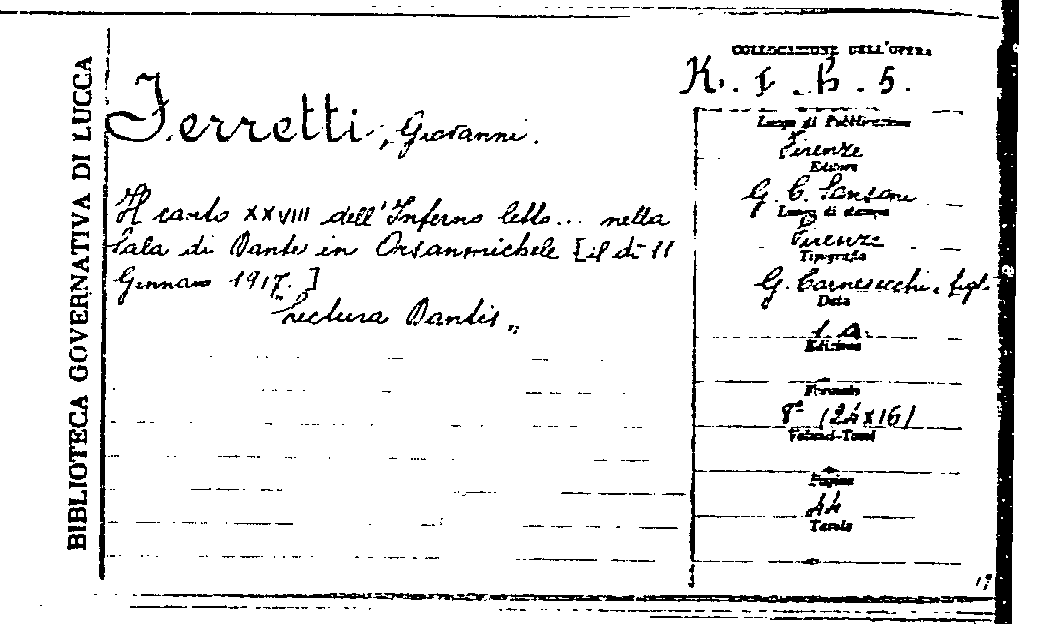 BIBLIOTECA GOVERNATIVA DI LUCCA
COLLOCAZIONE DELL'OPERA
K. I. B. 5.
Ferretti, Giovanni.
Il canto XXVIII dell'Inferno letto... nella
Sala di Dante in Orsanmichele [il dì 11
Gennaio 1917.]
"Lectura Dantis„
Luogo di Pubblicazione
Firenze
Editore
G. C. Sansoni
Luogo di stampa
Firenze
Tipografia
G. Carnesecchi e figli
Data
s. a.
Edizione
Formato
8° (24x16)
Volumi-Tomi
Pagine
44
Tavole